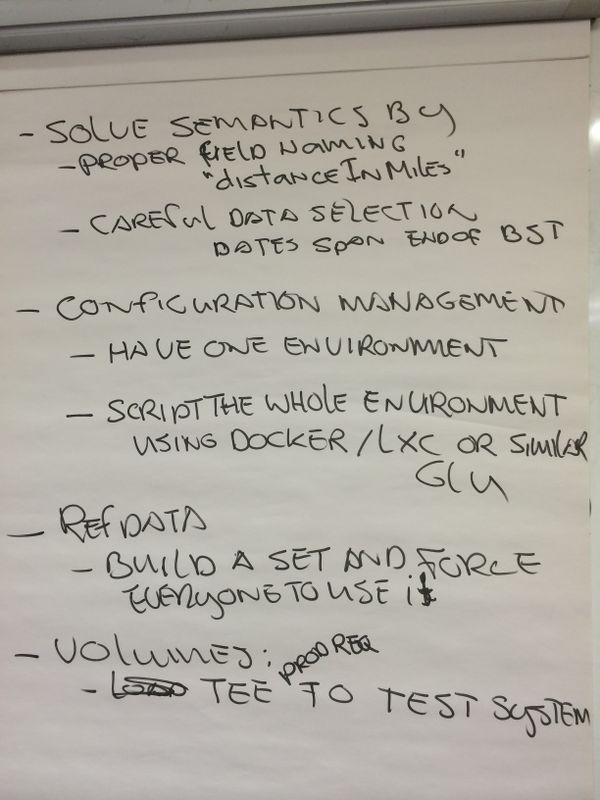 - SOLVE SEMANTICS BY
- PROPER FIELD NAMING
"distanceInMiles"
- CAREFUL DATA SELECTION
DATES SPAN END OF BST
- CONFIGURATION MANAGEMENT
- HAVE ONE ENVIRONMENT
- SCRIPT THE WHOLE ENVIRONMENT
USING DOCKER / LXC OR SIMILAR
GLU
- REFDATA
- BUILD A SET AND FORCE
EVERYONE TO USE it
- VOLUMES:
- TEE PROD REQ TO TEST SYSTEM